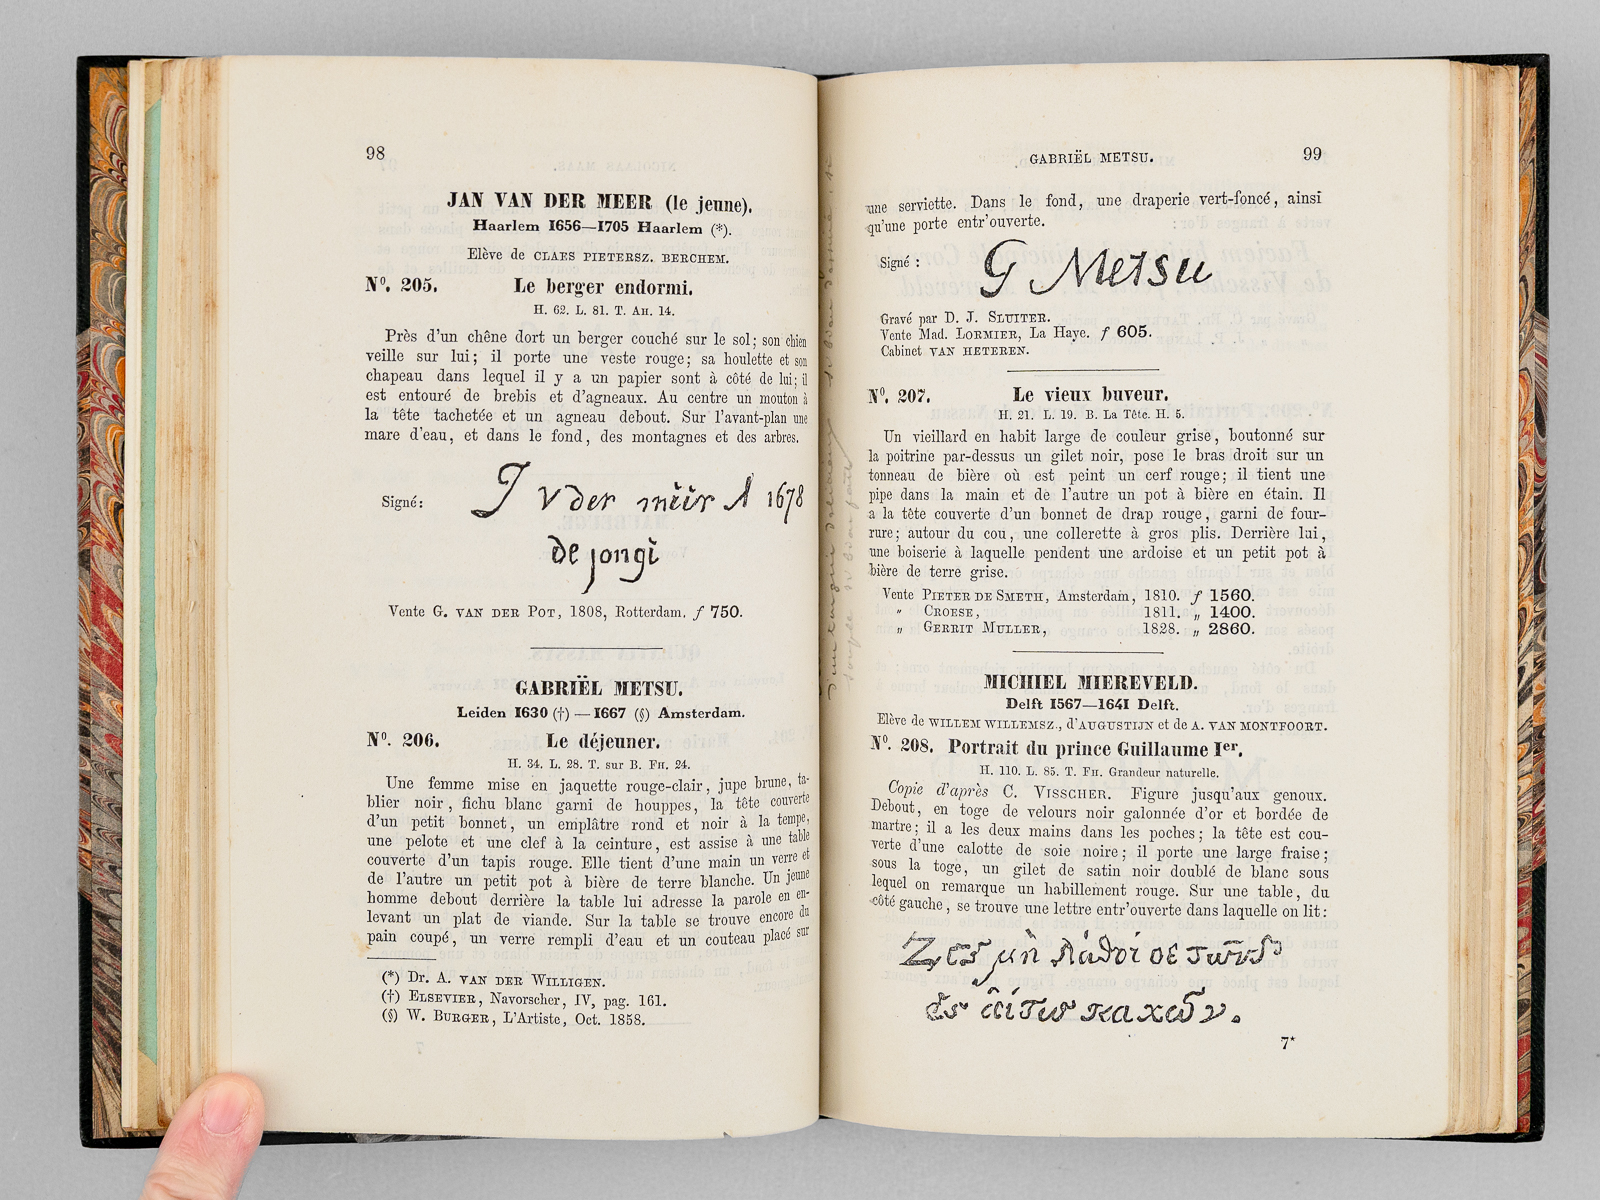 98
JAN VAN DER MEER (le jeune).
Haarlem 1656—1705 Haarlem (*).
Elève de CLAES PIETERSZ. BERCHEM.
N⁰. 205. Le berger endormi.
H. 62. L. 81. T. AH. 14.
Près d'un chêne dort un berger couché sur le sol; son chien
veille sur lui; il porte une veste rouge; sa houlette et son
chapeau dans lequel il y a un papier sont à côté de lui; il
est entouré de brebis et d'agneaux. Au centre un mouton à
la tête tachetée et un agneau debout. Sur l'avant-plan une
mare d'eau, et dans le fond, des montagnes et des arbres.
Signé: J v der meer 1678
de jonge
Vente G. VAN DER POT, 1808, Rotterdam. f 750.
GABRIËL METSU.
Leiden 1630 (†) — 1667 (§) Amsterdam.
N⁰. 206. Le déjeuner.
H. 34. L. 28. T. sur B. FH. 24.
Une femme mise en jaquette rouge-clair, jupe brune, ta-
blier noir, fichu blanc garni de houppes, la tête couverte
d'un petit bonnet, un emplâtre rond et noir à la tempe,
une pelote et une clef à la ceinture, est assise à une table
couverte d'un tapis rouge. Elle tient d'une main un verre et
de l'autre un petit pot à bière de terre blanche. Un jeune
homme debout derrière la table lui adresse la parole en en-
levant un plat de viande. Sur la table se trouve encore du
pain coupé, un verre rempli d'eau et un couteau placé sur
(*) Dr. A. VAN DER WILLIGEN.
(†) ELSEVIER, Navorscher, IV, pag. 161.
(§) W. BURGER, L'Artiste, Oct. 1858.
GABRIËL METSU. 99
une serviette. Dans le fond, une draperie vert-foncé, ainsi
qu'une porte entr'ouverte.
Signé : G Metsu
Gravé par D. J. SLUITER.
Vente Mad. LORMIER, La Haye. f 605.
Cabinet VAN HETEREN.
N⁰. 207. Le vieux buveur.
H. 21. L. 19. B. La Tête. H. 5.
Un vieillard en habit large de couleur grise, boutonné sur
la poitrine par-dessus un gilet noir, pose le bras droit sur un
tonneau de bière où est peint un cerf rouge; il tient une
pipe dans la main et de l'autre un pot à bière en étain. Il
a la tête couverte d'un bonnet de drap rouge, garni de four-
rure; autour du cou, une collerette à gros plis. Derrière lui,
une boiserie à laquelle pendent une ardoise et un petit pot à
bière de terre grise.
Vente PIETER DE SMETH, Amsterdam, 1810. f 1560.
„ CROESE, 1811. „ 1400.
„ GERRIT MULLER, 1828. „ 2860.
MICHIEL MIEREVELD.
Delft 1567—1641 Delft.
Elève de WILLEM WILLEMSZ., d'AUGUSTIJN et de A. VAN MONTFOORT.
N⁰. 208. Portrait du prince Guillaume Iᵉʳ.
H. 110. L. 85. T. FH. Grandeur naturelle.
Copie d'après C. VISSCHER. Figure jusqu'aux genoux.
Debout, en toge de velours noir galonnée d'or et bordée de
martre; il a les deux mains dans les poches; la tête est cou-
verte d'une calotte de soie noire; il porte une large fraise;
sous la toge, un gilet de satin noir doublé de blanc sous
lequel on remarque un habillement rouge. Sur une table, du
côté gauche, se trouve une lettre entr'ouverte dans laquelle on lit:
μὴ λάθοι σε
7*